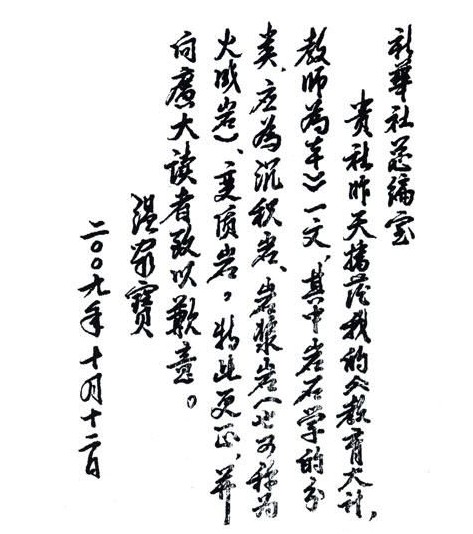 新华社总编室
贵社昨天播发我的《教育大计，
教师为本》一文，其中岩石学的分
类，应为沉积岩、岩浆岩（也可称为
火成岩）、变质岩。特此更正，并
向廣大读者致以歉意。
温家寶
二〇〇九年十月十二日